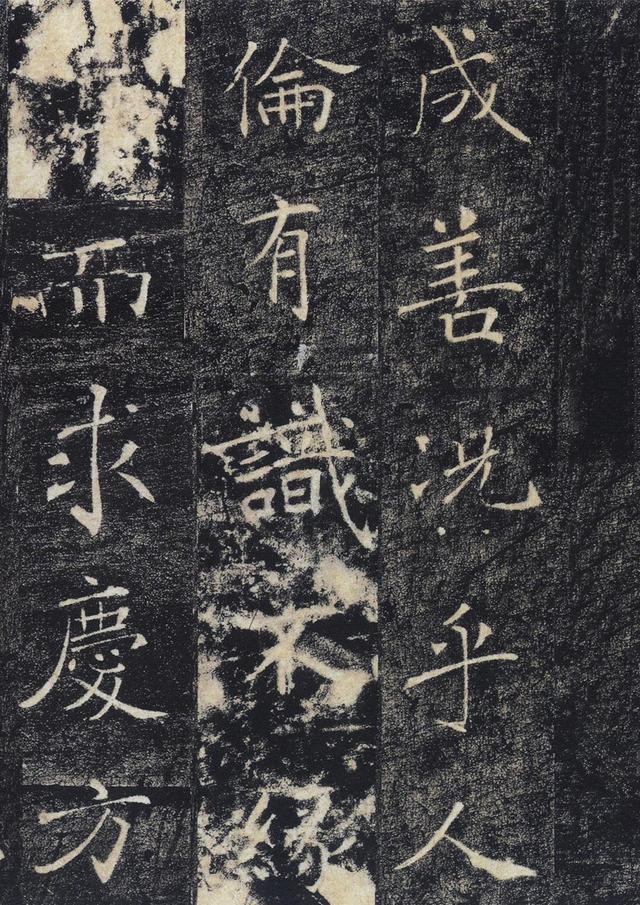 成善況乎人
倫有識不緣
而求慶方